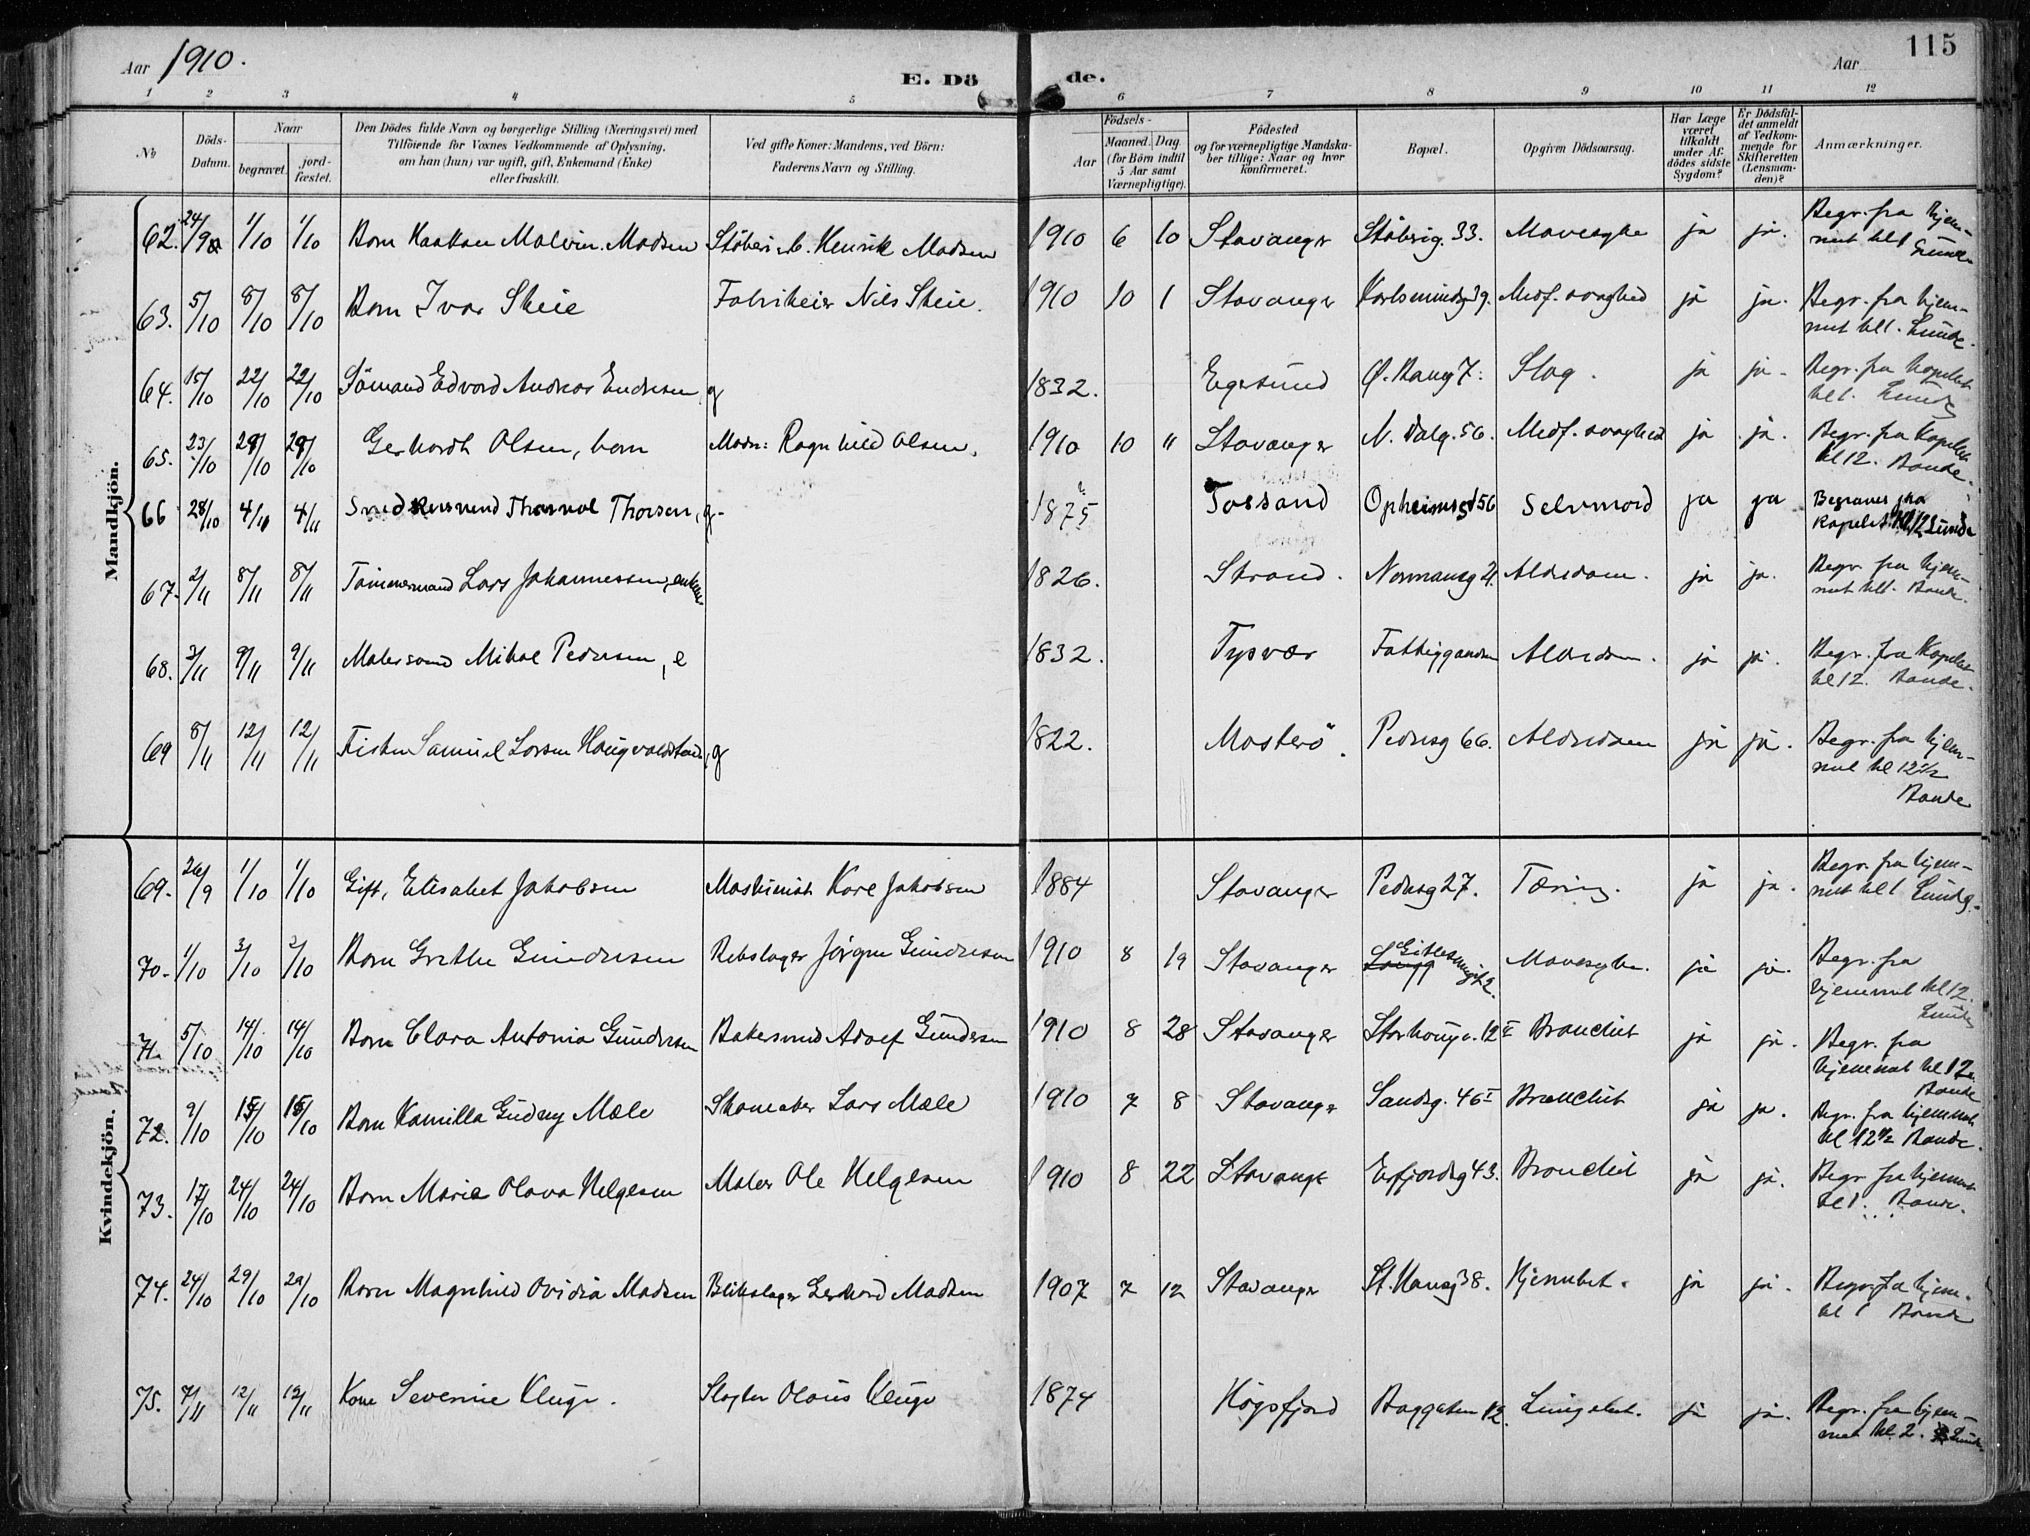 Aar 1910.
E. Dö
de.
Aar
115
1 2 3 4 5 6 7 8 9 10 11 12
№
Döds-
Datum.
Naar
begravet.
jord-
fæstet.
Den Dödes fulde Navn og borgerlige Stilling (Næringsvei) med
Tilföiende for Voxnes Vedkommende af Oplysning,
om han (hun) var ugift, gift, Enkemand (Enke)
eller fraskilt.
Ved gifte Koner: Mandens, ved Börn:
Faderens Navn og Stilling.
Födsels-
Aar
Maaned. Dag
(for Börn indtil
5 Aar samt
Værnepligtige).
Födested
og for værnepligtige Mandska-
ber tillige: Naar og hvor
konfirmeret.
Bopæl.
Opgiven Dödsaarsag.
Har Læge
været
tilkaldt
under Af-
dödes sidste
Sygdom?
Er Dödsfal-
det anmeldt
af Vedkom-
mende for
Skifteretten
(Lensman-
den)?
Anmærkninger.
Mandkjön.
62. 24/9 1/10 1/10 Barn Haakon Malvin Madsen Støberiarb. Henrik Madsen 1910 6 10 Stavanger Støberig. 33. Mavesyke ja ja. Begr. fra hjem-
met kl 1 Lunde
63. 5/10 8/10 8/10 Barn Ivar Skeie Fabrikeier Nils Skeie. 1910 10 1 Stavanger Karlsmindeg 39. Medf. svaghed ja ja. Begr. fra hjem-
met kl 1. Lunde.
64. 15/10 22/10 22/10 Sömand Edvard Andreas Endresen, g 1832. Egersund Ø. Haug 7. Slag. ja ja. Begr. fra Kapellet
kl 1. Lunde
65. 23/10 29/10 29/10 Gerhardt Olsen, barn Modn: Ragnhild Olsen. 1910 10 " Stavanger N. Dalg. 56. Medf. svaghed ja ja. Begr. fra Kapellet
kl 12. Aande.
66 28/10 4/11 4/11 Thorsen, g. 1875 Fossand Opheimsgd 56 Selvmord ja ja Begraves fra
Kapellet kl 12 Lunde
67. 2/11 8/11 8/11 Tömmermand Lars Johannessen, enkem. 1826. Strand. Normansg 21. Alderdom. ja ja. Begr. fra hjem-
met kl 1. Aande.
68. 3/11 9/11 9/11 Malersvend Mikal Pedersen, e 1832. Tysvær Fattiggaarden Alderdom. ja ja. Begr. fra Kapellet
kl 12. Aande.
69 8/11 12/11 12/11 Fisker Samuel Larsen Haugvaldstad, g 1822. Mosterö. Pedersg 66. Alderdom ja ja. Begr. fra hjem-
met kl 12 1/2
Aande
Kvindekjön.
69. 26/9 1/10 1/10 Gift, Elisabet Jakobsen Maskinist Kare Jakobsen 1884 Stavanger Pedersg 27. Tæring. ja ja. Begr. fra hjem-
met kl 1 Lunde.
70. 1/10 3/10 3/10 Barn Grethe Gundersen Rebslager Jörgen Gundersen 1910 8 19 Stavanger Mavesyke. ja ja. Begr. fra
hjemmet kl 12.
Lunde
71. 5/10 14/10 14/10 Barn Clara Antonia Gundersen Bakersvend Adolf Gundersen 1910 8 28 Stavanger Storhougv. 12 II Bronchit ja ja. Begr. fra
hjemmet kl 12.
Aande
72. 9/10 15/10 15/10 Barn Kamilla Gudny Mæle Skomaker Lars Mæle 1910 7 8 Stavanger Sandsg. 46 I Bronchit ja ja. Begr. fra hjemmet
kl 12 1/2 Aande.
73. 17/10 24/10 24/10 Barn Marie Olava Helgesen Maler Ole Helgesen 1910 8 22 Stavanger Erfjordsg 43. Bronchit ja ja. Begr fra hjemmet
kl 1. Aande.
74. 24/10 29/10 29/10 Barn Magnhild Ovidia Madsen Blikslager Gerhard Madsen 1907 7 12 Stavanger St. Hansg 38. Hjernebet. ja ja. Begr. fra hjem.
kl 1 Aande
75. 7/11 12/11 12/11 Kone Severine Kluge. Slagter Olaus Kluge 1874 Högsfjord Baggaten 12. Lungebet. ja ja. Begr. fra hjem-
met kl. 2. Lunde